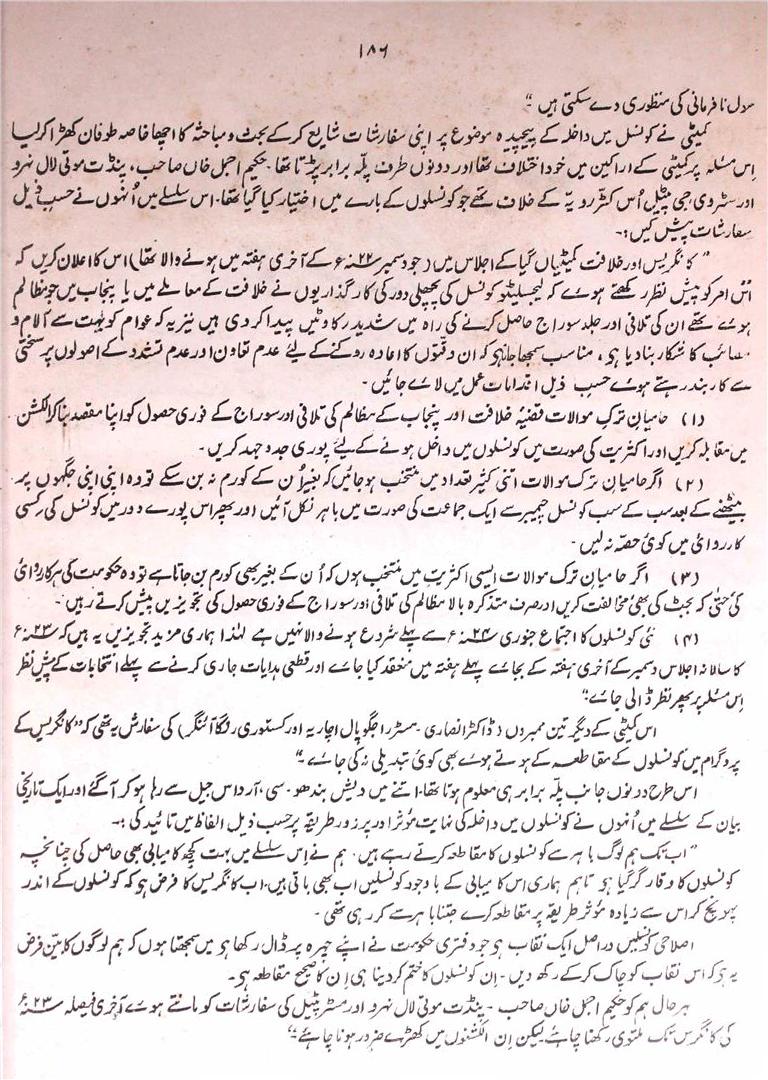 ۱۸۶
سول نا فرمانی کی منظوری دے سکتی ہیں۔"
کمیٹی نے کونسل میں داخلہ کے پیچیدہ موضوع پر اپنی سفارشات شایع کرکے بحث و مباحثہ کا اچھا خاصہ طوفان کھڑا کرلیا
اِس مسئلہ پر کمیٹی کے اراکین میں خود اختلاف تھا اور دونوں طرف پلّہ برابر پڑتا تھا۔ حکیم اجمل خاں صاحب، پنڈت موتی لال نہرو
اور مسٹر وی۔ جی۔ پٹیل اُس کٹّر رویہّ کے خلاف تھے جو کونسلوں کے بارے میں اختیار کیا گیا تھا۔ اس سلسلے میں اُنہوں نے حسبِ ذیل
سفارشات پیش کیں:۔
"کانگریس اور خلافت کمیٹیاں گیا کے اجلاس میں (جو دسمبر ۲۲ء کے آخری ہفتہ میں ہونے والا تھا) اس کا اعلان کریں کہ
اس امر کو پیش نظر رکھتے ہوے کہ لیجسلیٹو کونسل کی پچھلی دور کی کارگذاریوں نے خلافت کے معاملے میں یا پنجاب میں جو مظالم
ہوے تھے ان کی تلافی اور جلد سوراج حاصل کرنے کی راہ میں شدید رکاوٹیں پیدا کر دی ہیں نیز یہ کہ عوام کو بہت سے آلام و
مصائب کا شکار بنا دیا ہو، مناسب سمجھا جا ہو کہ ان دقتوں کا اعادہ روکنے کے لیئے عدم تعاون اور عدم تشدد کے اصولوں پر سختی
سے کاربند رہتے ہوے حسبِ ذیل اقدامات عمل میں لاے جائیں۔
(۱) حامیانِ ترک موالات قضیۂ خلافت اور پنجاب کے مظالم کی تلافی اور سوراج کے فوری حصول کو اپنا مقصد بنا کر الکشن
میں مقابلہ کریں اور اکثریت کی صورت میں کونسلوں میں داخل ہونے کے لیئے پوری جدوجہد کریں۔
(۲) اگر حامیان ترک موالات اتنی کثیر تعداد میں منتخب ہو جائیں کہ بغیر اُن کے کورم نہ بن سکے تو وہ اپنی اپنی جگہوں پر
بیٹھنے کے بعد سب کے سب کونسل چیمبر سے ایک جماعت کی صورت میں باہر نکل آئیں اور پھر اس پورے دور میں کونسل کی کسی
کارروائی میں کوئی حصّہ نہ لیں۔
(۳) اگر حامیان ترک موالات ایسی اکثریت میں منتخب ہوں کہ اُن کے بغیر بھی کورم بن جاتا ہے تو وہ حکومت کی ہر کارروائی
کی حتیٰ کہ بجٹ کی بھی مخالفت کریں اور صرف متذکرہ بالا مظالم کی تلافی اور سوراج کے فوری حصول کی تجویزیں پیش کرتے رہیں۔
(۴) نئی کونسلوں کا اجتماع جنوری ۲۴ء سے پہلے شروع ہونے والا نہیں ہے لہٰذا ہماری مزید تجویزیں یہ ہیں کہ ۲۳ء
کا سالانہ اجلاس دسمبر کے آخری ہفتہ کے بجاے پہلے ہفتہ میں منعقد کیا جاے اور قطعی ہدایات جاری کرنے سے پہلے انتخابات کے پیش نظر
اِس مسئلہ پر پھر نظر ڈالی جاے۔"
اس کمیٹی کے دیگر تین ممبروں (ڈاکٹر انصاری۔ مسٹر راجگوپال اچاریہ اور کستوری رنگا آئنگر) کی سفارش یہ تھی کہ "کانگریس کے
پروگرام میں کونسلوں کے مقاطعہ کے ہوتے ہوے بھی کوئی تبدیلی نہ کی جاے۔"
اس طرح دونوں جانب پلّہ برابر ہی معلوم ہوتا تھا۔ اتنے میں دیش بندھو۔ سی، آر داس جیل سے رہا ہو کر آ گئے اور ایک تاریخی
بیان کے سلسلے میں اُنہوں نے کونسلوں میں داخلہ کی نہایت موثر اور پر زور طریقہ پر حسب ذیل الفاظ میں تائید کی:۔
"اب تک ہم لوگ باہر سے کونسلوں کا مقاطعہ کرتے رہے ہیں۔ ہم نے اِس سلسلے میں بہت کچھ کامیابی بھی حاصل کی چنانچہ
کونسلوں کا وقار گر گیا ہو تاہم ہماری اس کامیابی کے باوجود کونسلیں اب بھی باقی ہیں۔ اب کانگریس کا فرض ہو کہ کونسلوں کے اندر
پہونچ کر اس سے زیادہ موثر طریقہ پر مقاطعہ کرے جتنا باہر سے کر رہی تھی۔
اصلاحی کونسلیں دراصل ایک نقاب ہو جو دفتری حکومت نے اپنے چہرہ پر ڈال رکھا ہو میں سمجھتا ہوں کہ ہم لوگوں کا عین فرض
یہ ہو کہ اس نقاب کو چاک کرکے رکھ دیں۔ اِن کونسلوں کا ختم کر دینا ہی اِن کا صحیح مقاطعہ ہو۔
بہرحال ہم کو حکیم اجمل خاں صاحب۔ پنڈت موتی لال نہرو اور مسٹر پٹیل کی سفارشات کو مانتے ہوے آخری فیصلہ ۲۳ء
کی کانگرس تک ملتوی رکھنا چاہئے لیکن اِن الکشنوں میں کھڑے ضرور ہونا چاہئے۔"